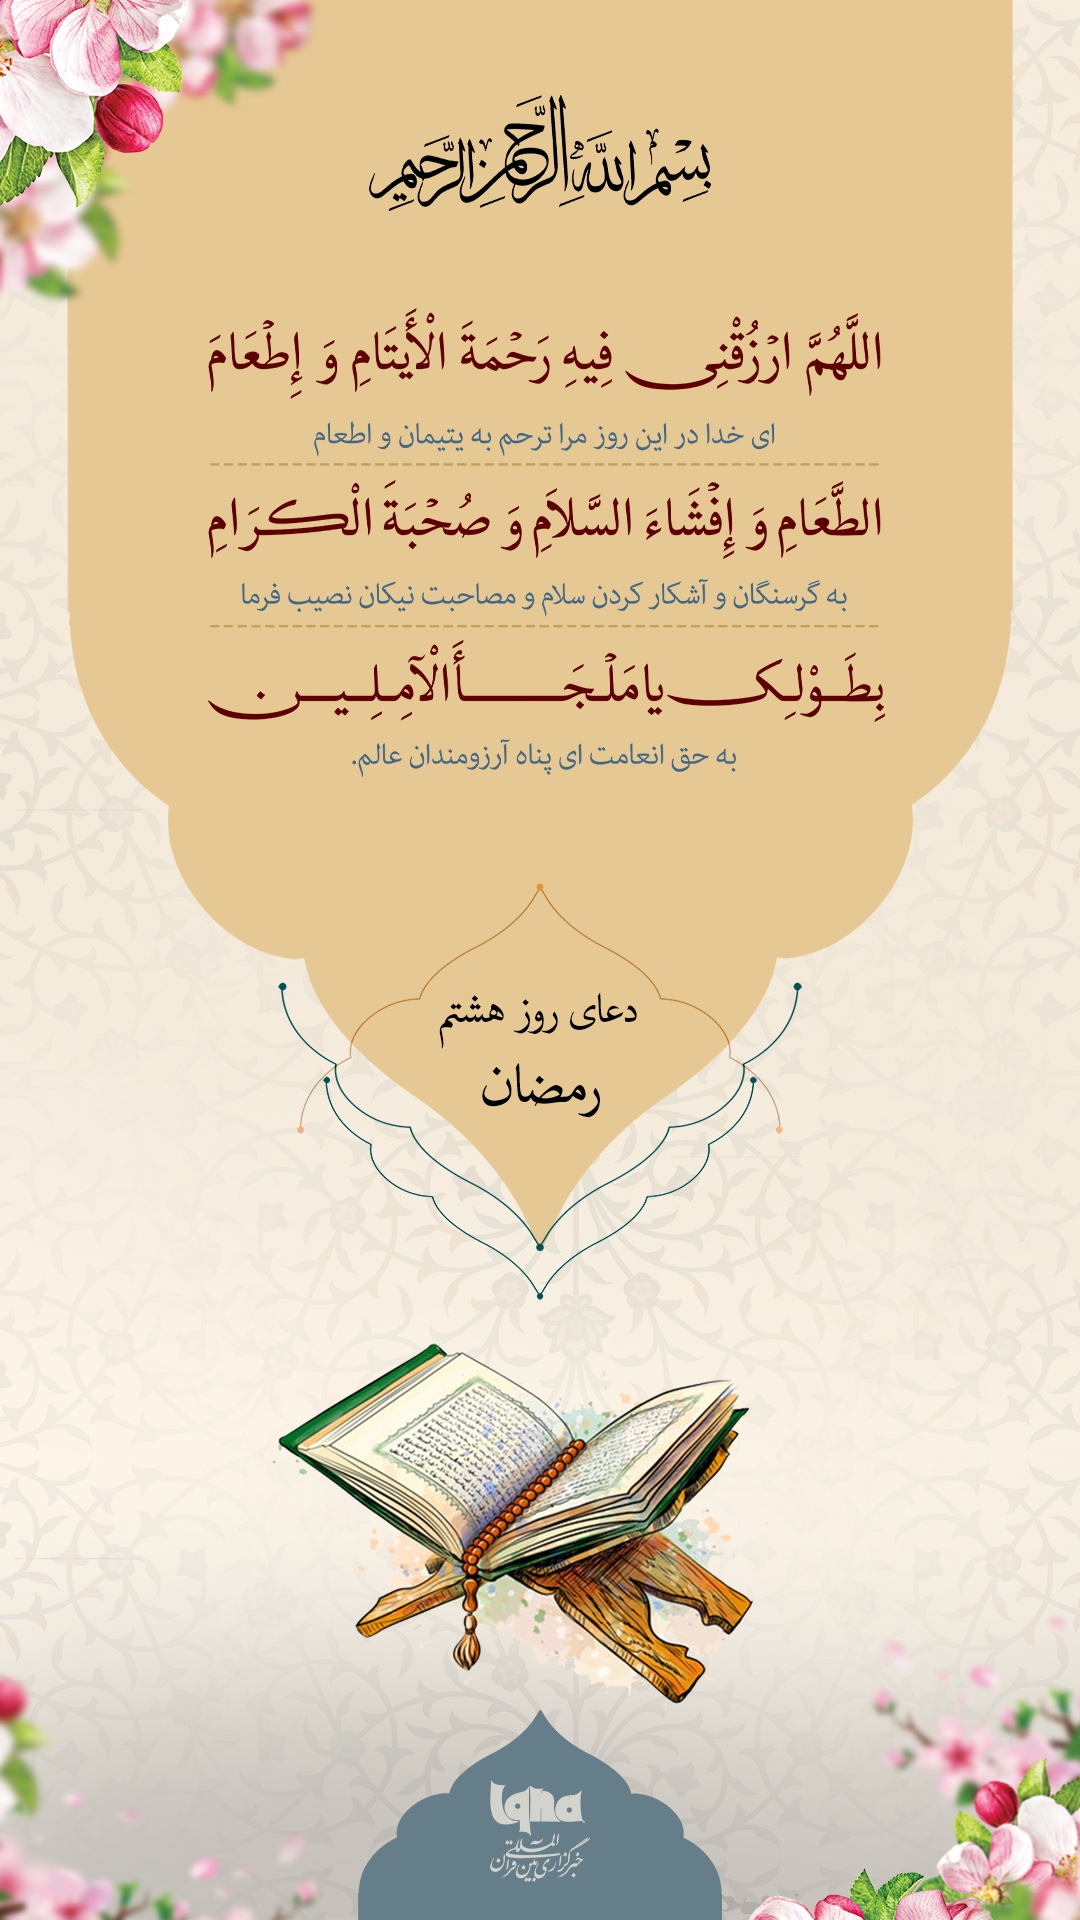 بِسْمِ اللَّهِ الرَّحْمَنِ الرَّحِيمِ
اللَّهُمَّ ارْزُقْنِی فِيهِ رَحْمَةَ الْأَيتَامِ وَ إِطْعَامَ
ای خدا در این روز مرا ترحم به یتیمان و اطعام
الطَّعَامِ وَ إِفْشَاءَ السَّلاَمِ وَ صُحْبَةَ الْکرَامِ
به گرسنگان و آشکار کردن سلام و مصاحبت نیکان نصیب فرما
بِطَوْلِک يا مَلْجَأَ الْآمِلِين
به حق انعامت ای پناه آرزومندان عالم.
دعای روز هشتم
رمضان
Iqna
خبرگزاری بین المللی قرآن